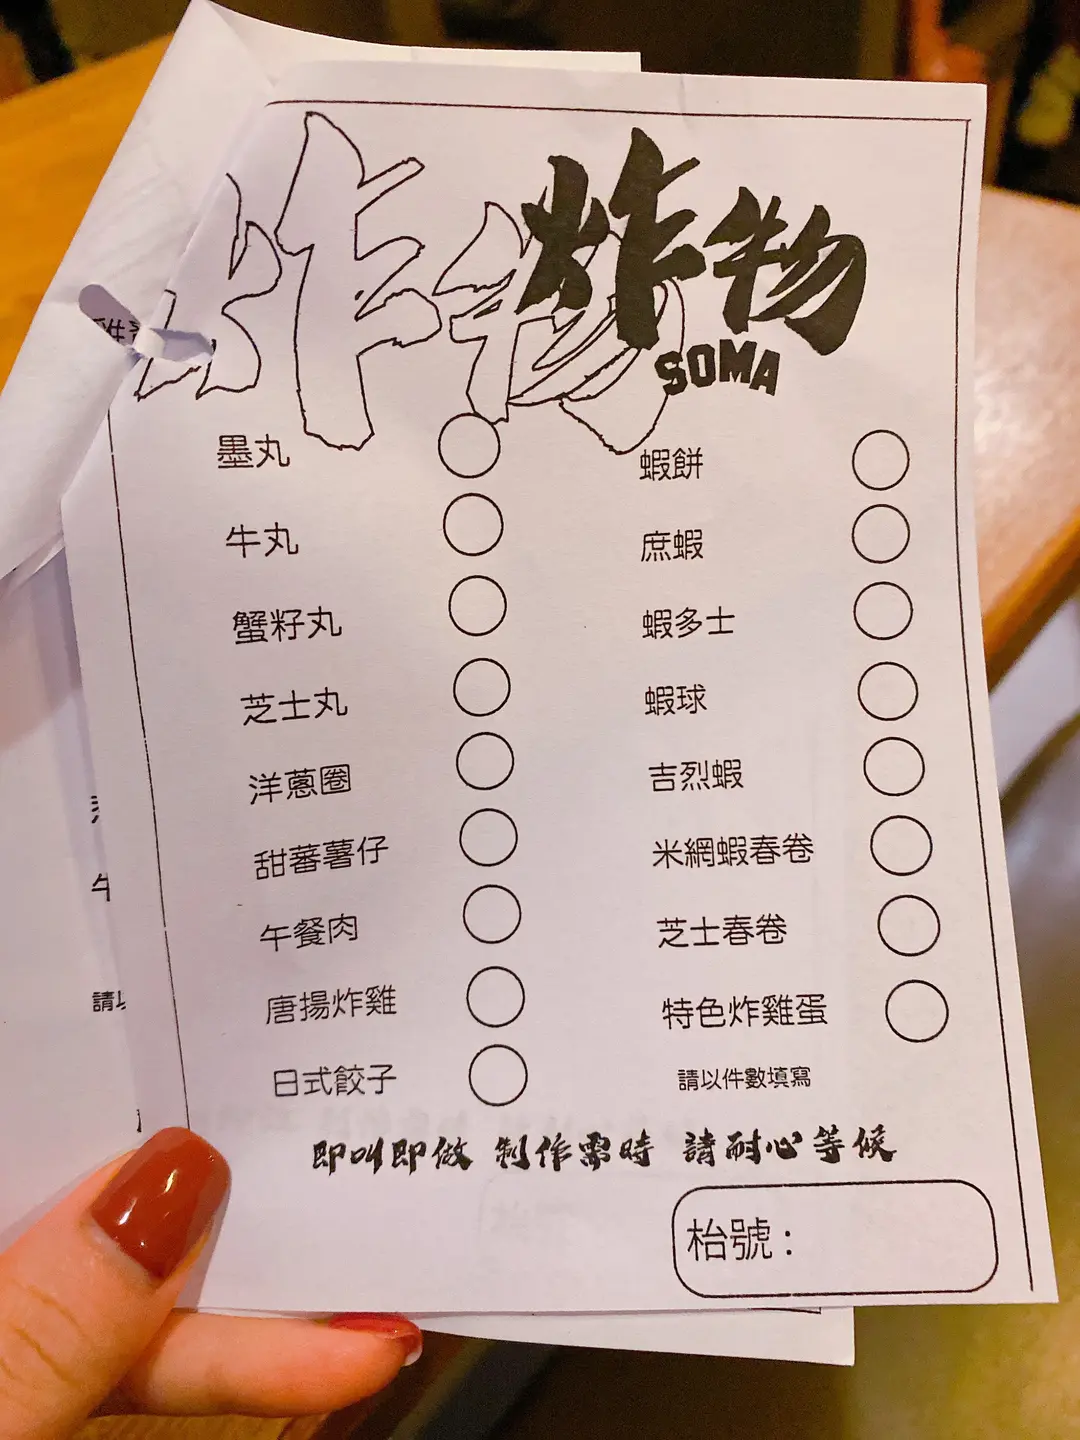 炸物
炸物
SOMA
墨丸
牛丸
蟹籽丸
芝士丸
洋蔥圈
甜蕃薯仔
午餐肉
唐揚炸雞
日式餃子
蝦餅
庶蝦
蝦多士
蝦球
吉烈蝦
米網蝦春卷
芝士春卷
特色炸雞蛋
請以件數填寫
即叫即做 制作需時 請耐心等候
枱號：
請以